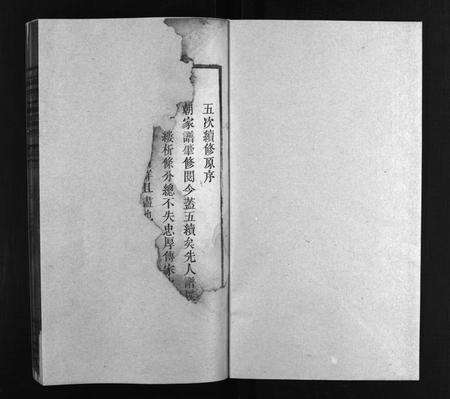 五次續修原序
朝家譜肇修閱今蓋五續矣先人譜
緩析條分總不失忠厚傳家
詳且盡也